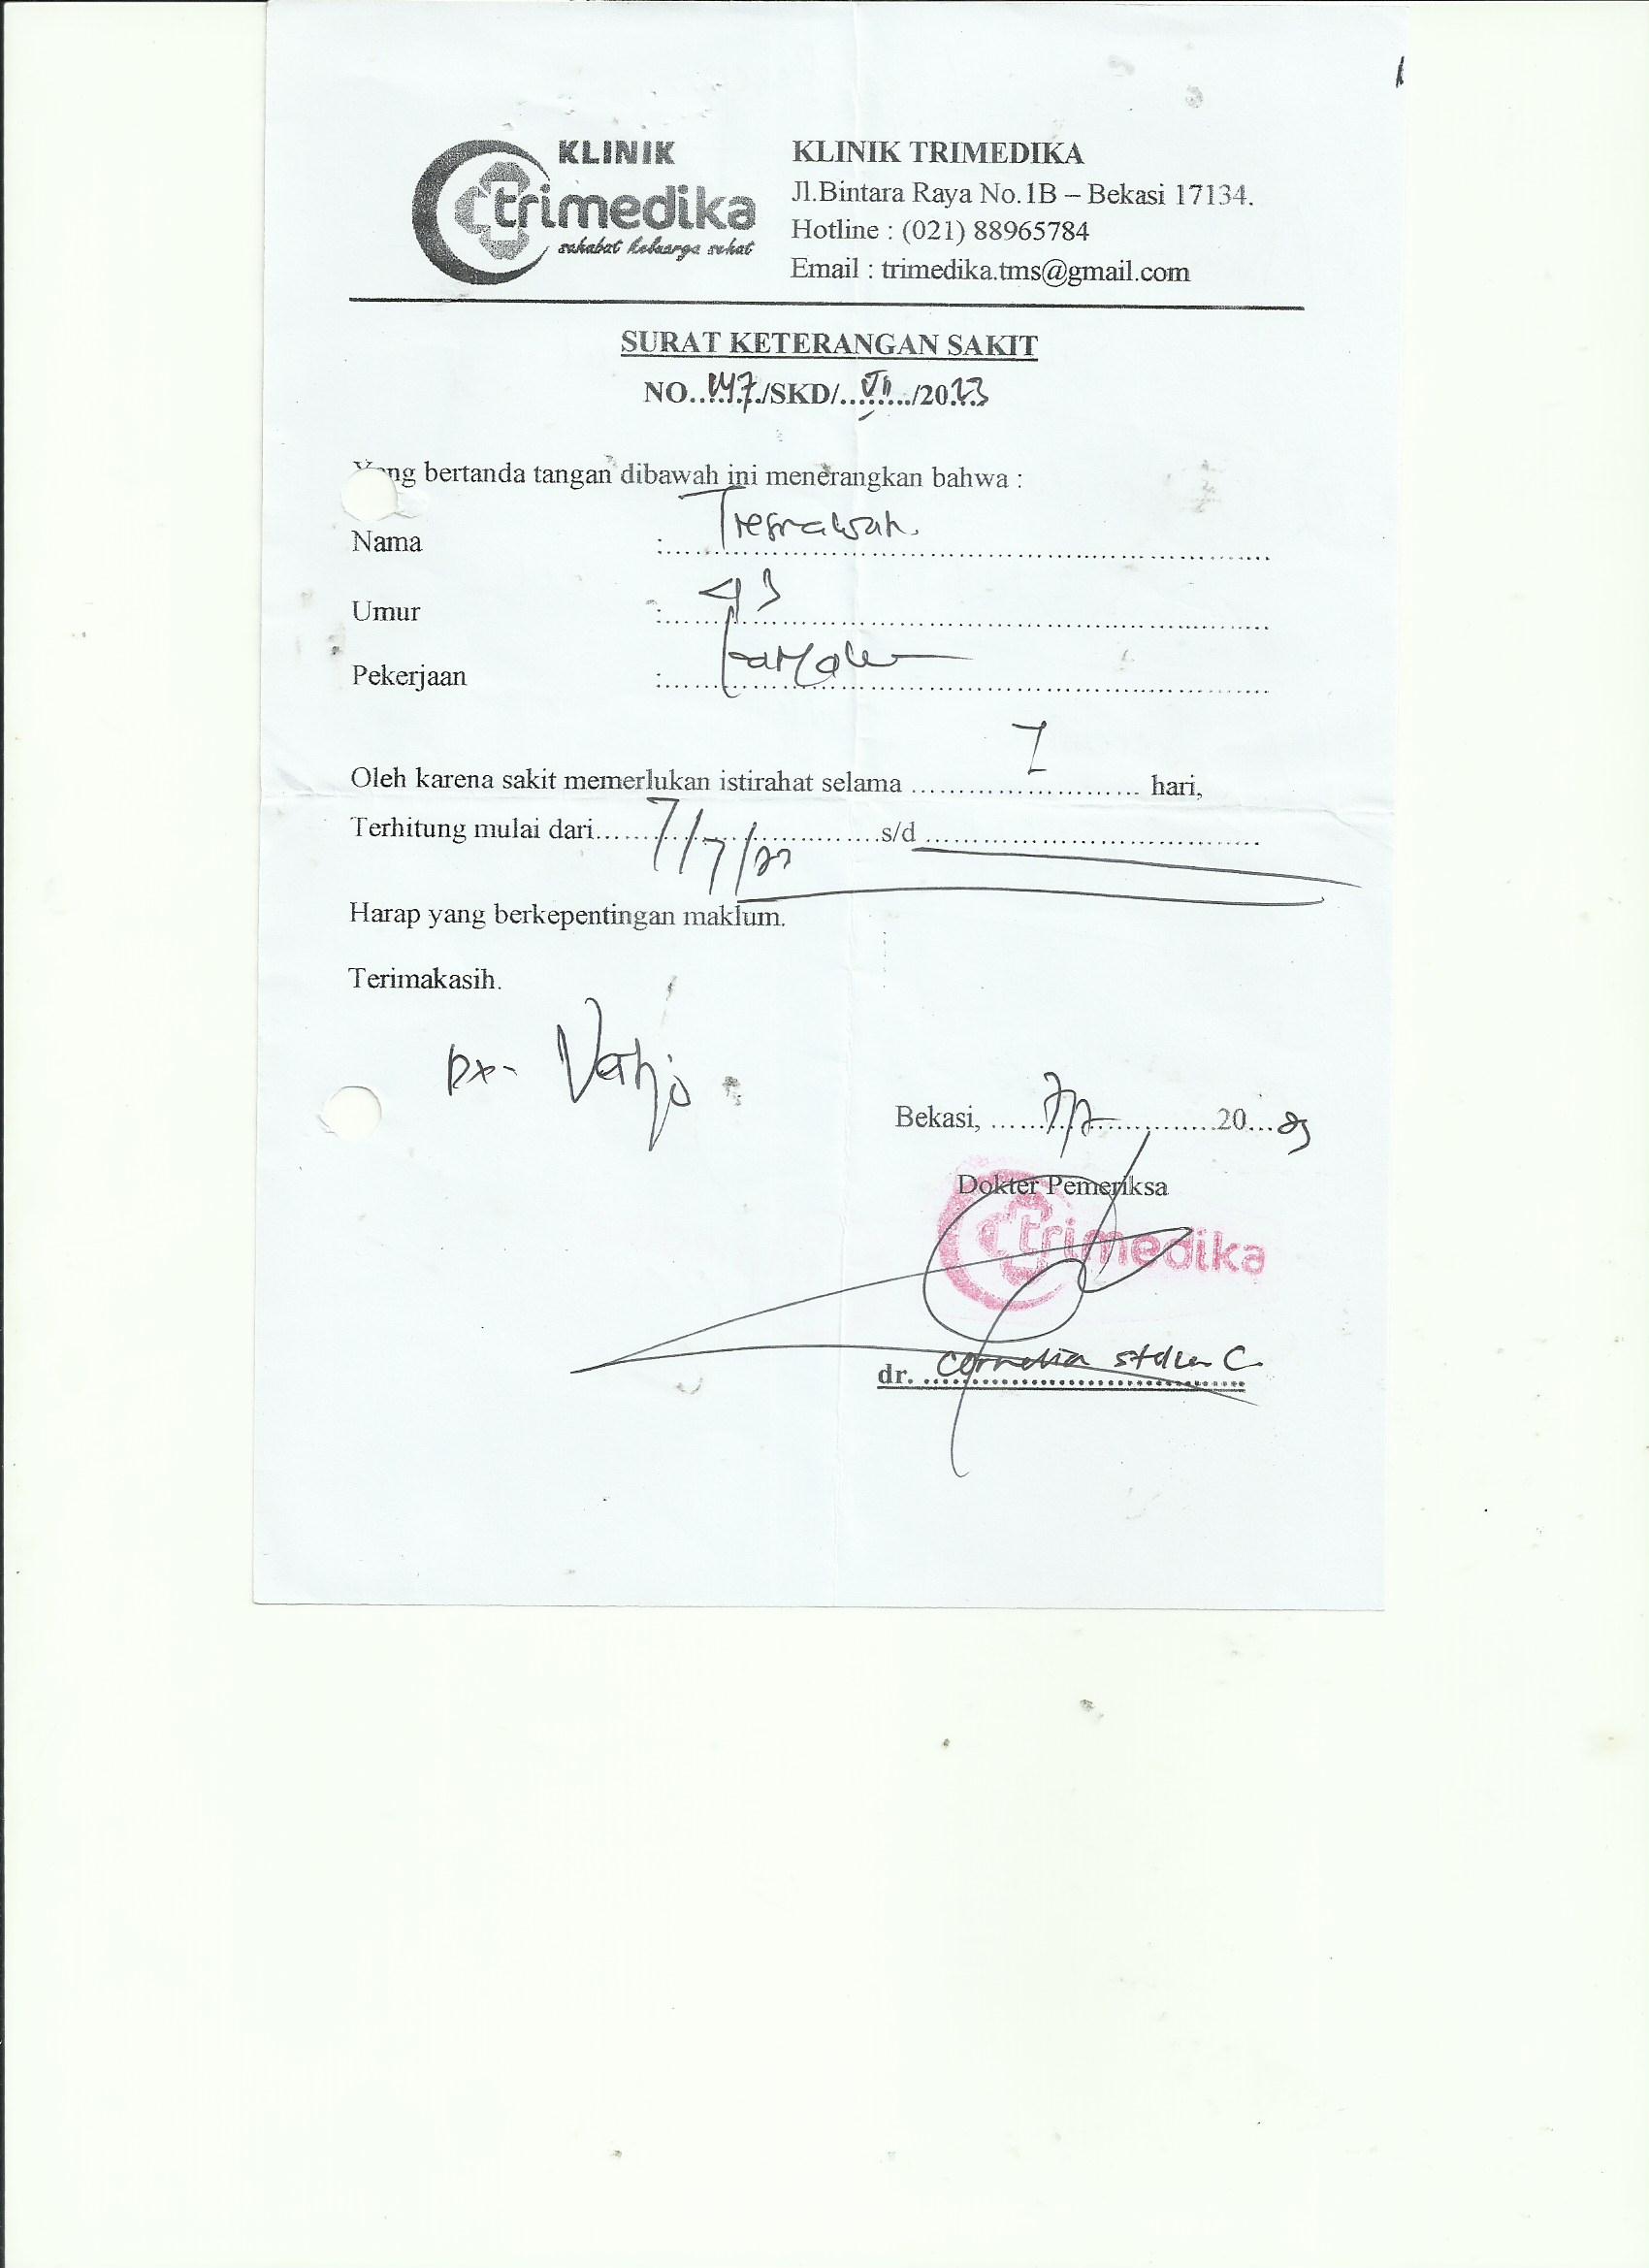 KLINIK
trimedika
sahabat keluarga sehat
KLINIK TRIMEDIKA
Jl.Bintara Raya No.1B – Bekasi 17134.
Hotline : (021) 88965784
Email : trimedika.tms@gmail.com
SURAT KETERANGAN SAKIT
NO......../SKD/...VII..../2023
ng bertanda tangan dibawah ini menerangkan bahwa :
Nama :
Umur : 43
Pekerjaan :
Oleh karena sakit memerlukan istirahat selama ........................ hari,
Terhitung mulai dari...7/7/23...s/d ...................................
Harap yang berkepentingan maklum.
Terimakasih.
Dx-
Bekasi, ......7/7..............20...23
Dokter Pemeriksa
trimedika
dr. Cornelia C.